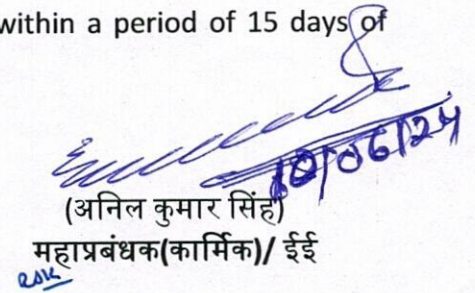 within a period of 15 days of
10/06/24
(अनिल कुमार सिंह)
महाप्रबंधक(कार्मिक)/ ईई